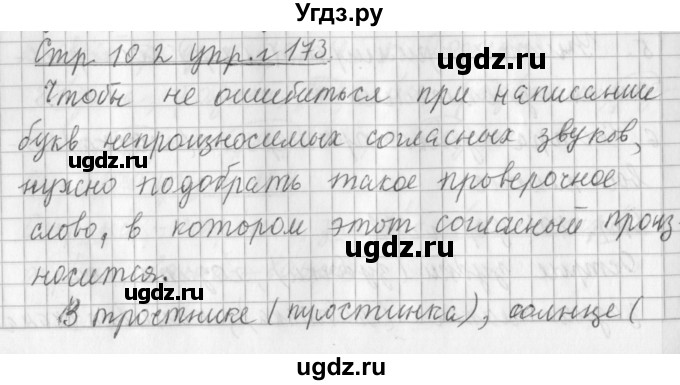 Угдз.ру
Стр 102 упр. 173.
Чтобы не ошибиться при написании
букв непроизносимых согласных звуков,
нужно подобрать такое проверочное
слово, в котором этот согласный произ-
носится.
В тростнике (тростинка), солнце (
ugdz.ru
ugdz.ru
ugdz.ru
ugdz.ru
ugdz.ru
ugdz.ru